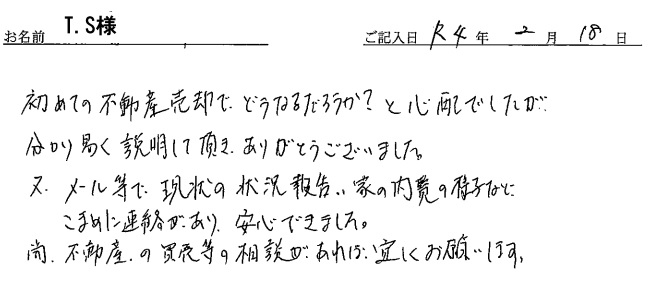 お名前 T.S様 ご記入日 R4年 2月 18日
初めての不動産売却で、どうなるだろうか?と心配でしたが
分かり易く説明して頂き、ありがとうございました。
又、メール等で、現状の状況報告、家の内覧の様子など
こまめに連絡があり、安心できました。
尚、不動産の買売等の相談があれば、宜しくお願いします。